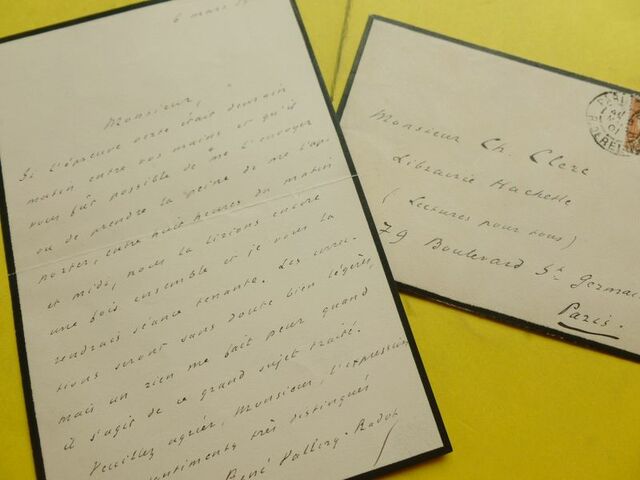 6 mars
Monsieur,
Si l'épreuve verte était demain
matin entre vos mains et qu'il
vous fût possible de me l'envoyer
ou de prendre la peine de me l'ap-
porter, entre huit heures du matin
et midi, nous la lirions encore
une fois ensemble et je vous la
rendrais séance tenante. Les correc-
tions seront sans doute bien légères,
mais un rien me fait peur quand
il s'agit de ce grand sujet traité.
Veuillez agréer, Monsieur, l'expression
sentiments très distingués
René Vallery-Radot
Monsieur Ch. Clerc
Librairie Hachette
(Lectures pour tous)
79 Boulevard St. Germain
Paris.